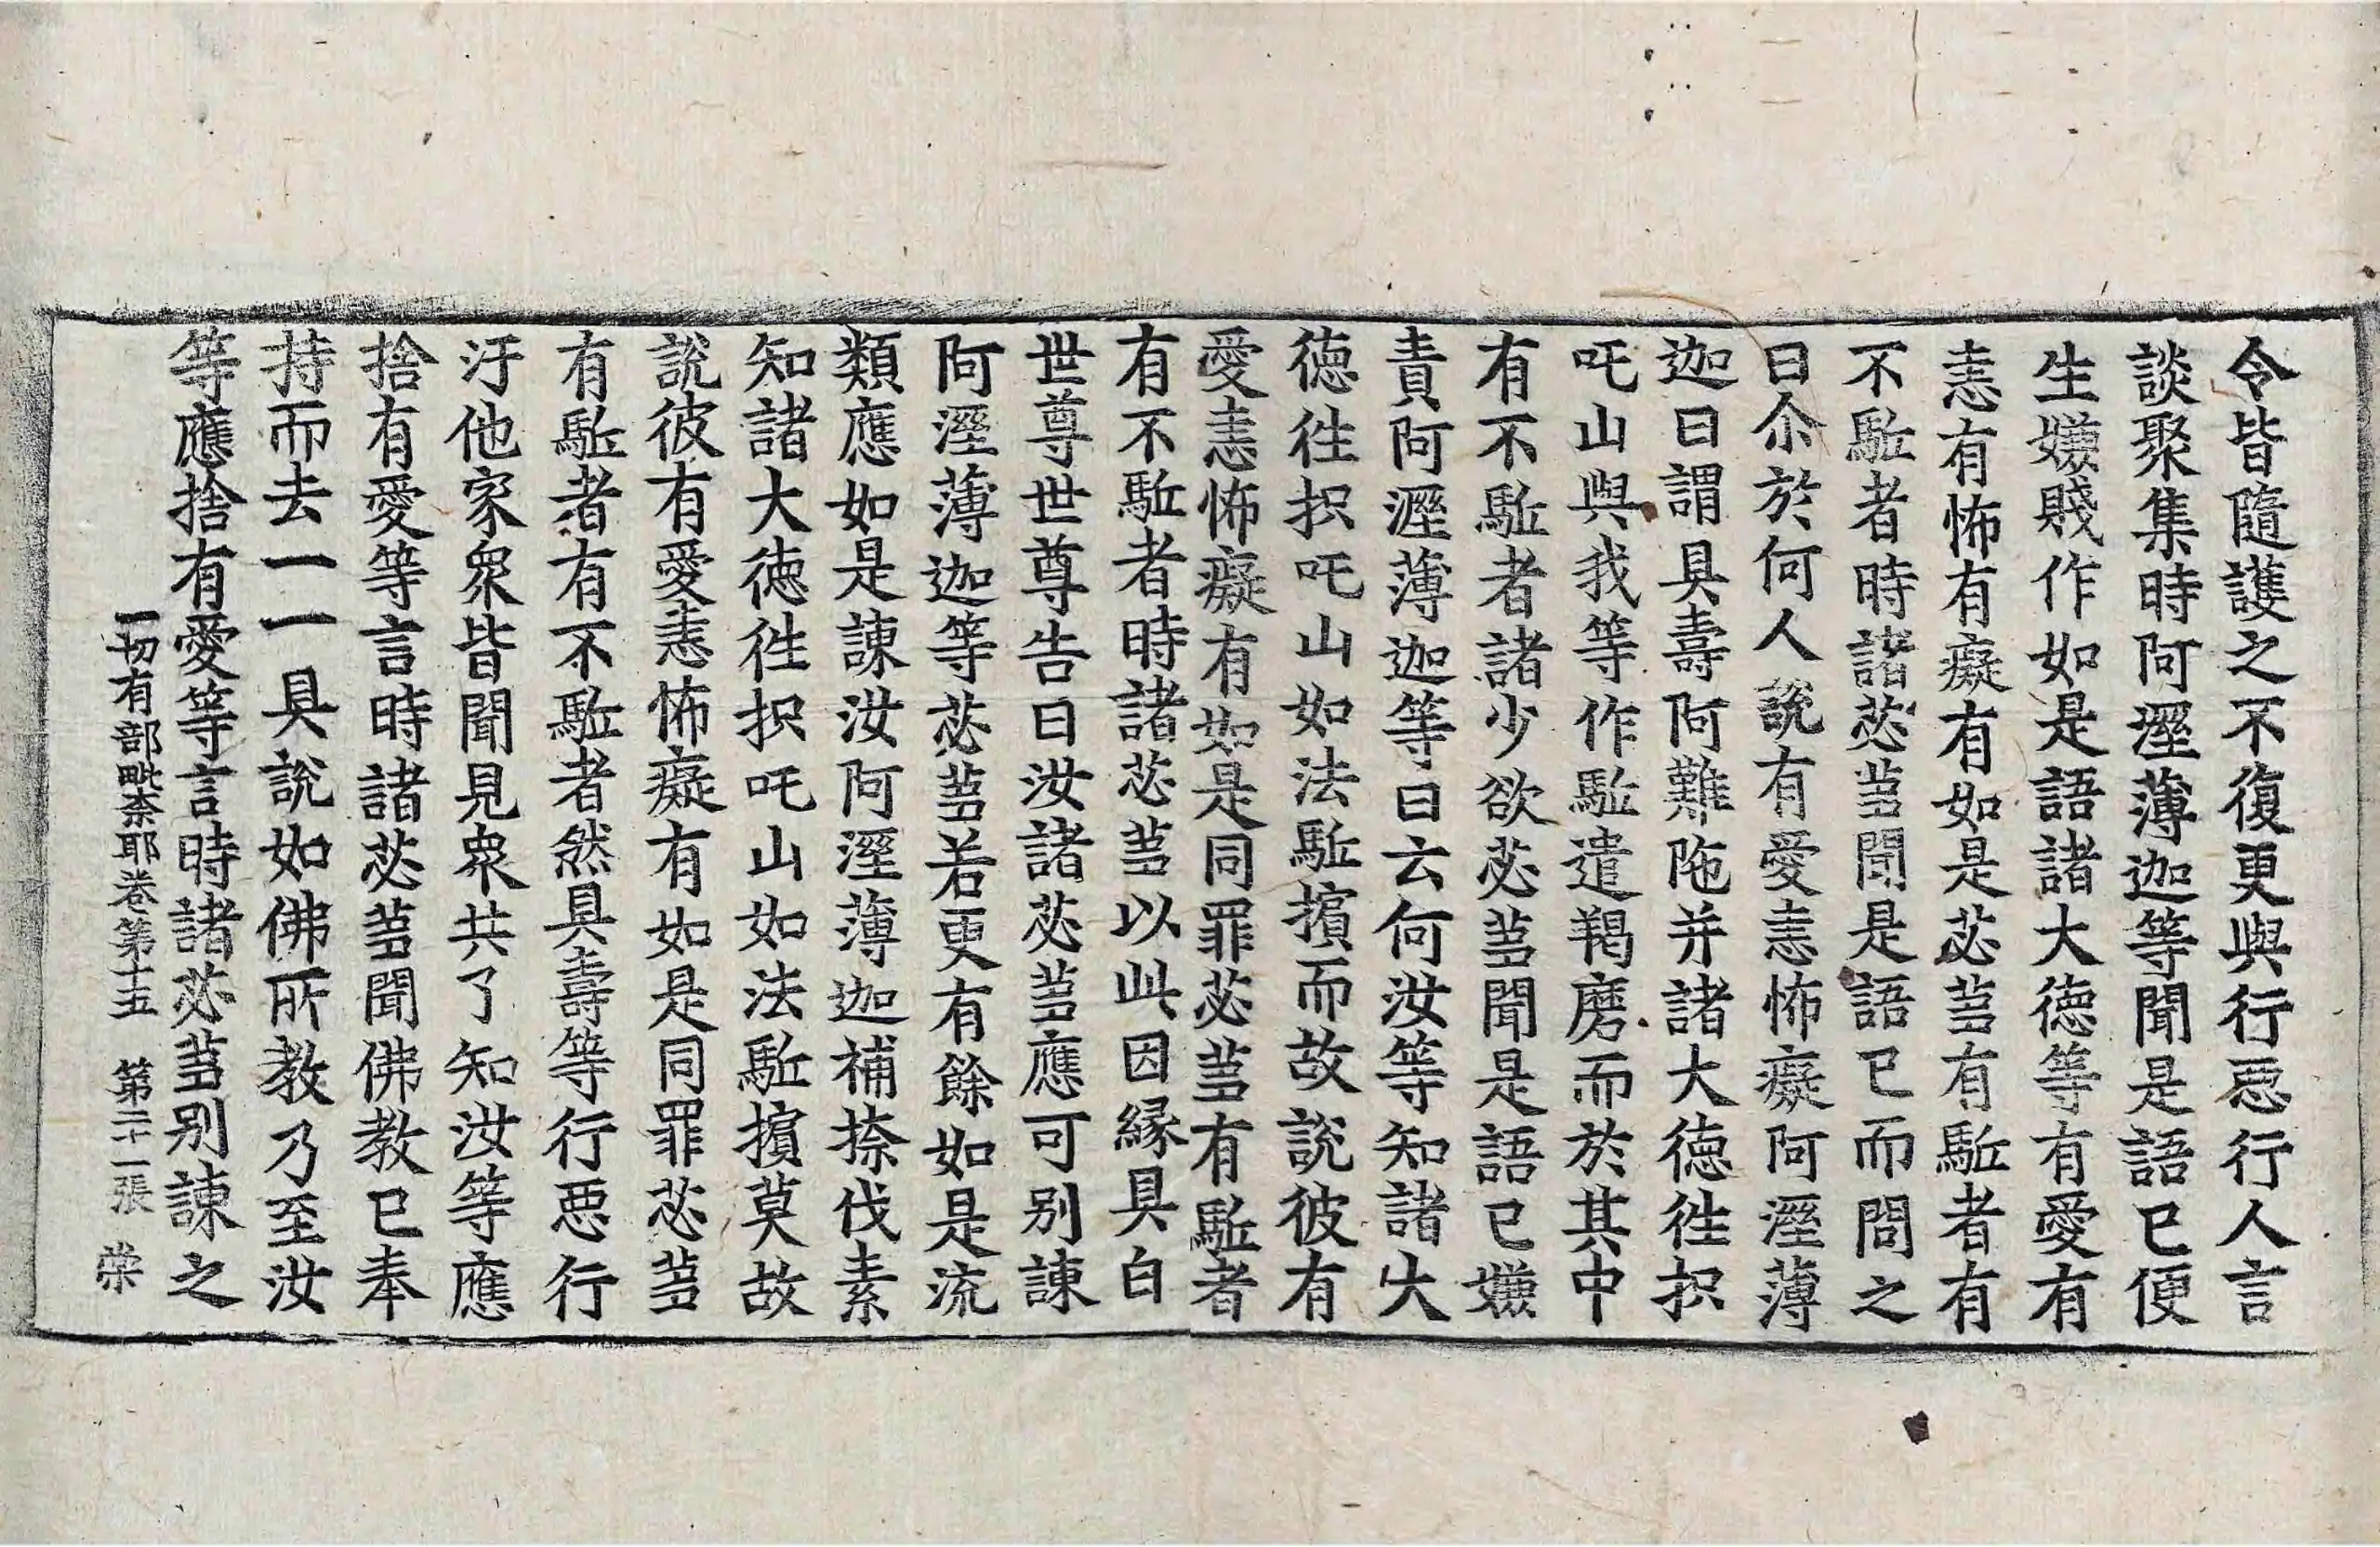 令皆隨護之不復更與行惡行人言
談聚集時阿溼薄迦等聞是語已便
生嫌賤作如是語諸大德等有愛有
恚有怖有癡有如是苾芻有駈者有
不駈者時諸苾芻聞是語已而問之
曰尒於何人說有愛恚怖癡阿溼薄
迦曰謂具壽阿難陁并諸大德徃抧
吒山與我等作駈遣羯磨而於其中
有不駈者諸少欲苾芻聞是語已嫌
責阿溼薄迦等曰云何汝等知諸大
德徃抧吒山如法駈擯而故說彼有
愛恚怖癡有如是同罪苾芻有駈者
有不駈者時諸苾芻以此因緣具白
世尊世尊告曰汝諸苾芻應可別諫
阿溼薄迦等苾芻若更有餘如是流
類應如是諫汝阿溼薄迦補捺伐素
知諸大德徃抧吒山如法駈擯莫故
說彼有愛恚怖癡有如是同罪苾芻
有駈者有不駈者然具壽等行惡行
汙他家衆皆聞見衆共了知汝等應
捨有愛等言時諸苾芻聞佛教已奉
持而去一一具說如佛所教乃至汝
等應捨有愛等言時諸苾芻別諫之
一切有部毗柰耶卷第十五 第二十一張 榮